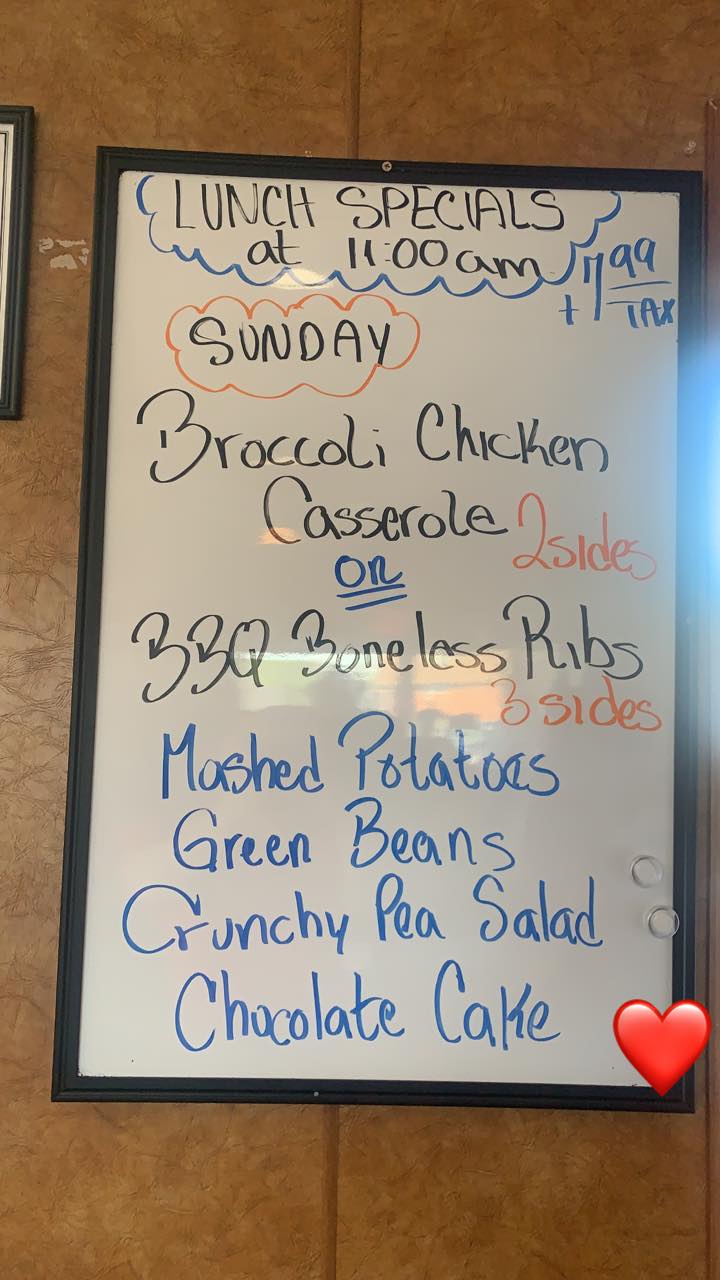 LUNCH SPECIALS
at 11:00am
7.99
+ TAX
SUNDAY
Broccoli Chicken
Casserole 2 sides
OR
BBQ Boneless Ribs
3 sides
Mashed Potatoes
Green Beans
Crunchy Pea Salad
Chocolate Cake